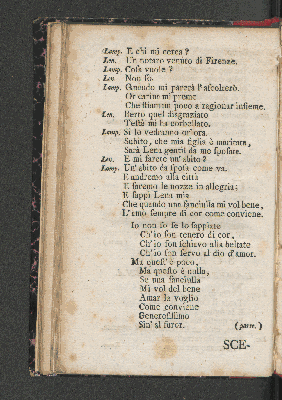 Lamp. E chi mi cerca?
Len. Un notaro venuto di Firenze.
Lamp. Cosa vuole?
Len. Non so.
Lamp. Quando mi parerà l'ascolterò.
Or catine mi preme
Che stiamo un poco a ragionar insieme.
Len. Berto quel disgraziato
Testà mi ha corbellato.
Lamp. Si lo vedranno orsora.
Subito, che mia figlia è maritata,
Sarà Lena gentil da me sposata.
Len. E mi farete un'abito?
Lamp. Un'abito da sposa come va.
E andremo alla città
E faremo le nozze in allegria;
E sappi Lena mia
Che quando una fanciulla mi vol bene,
L'amo sempre di cor come conviene.
Io non so se lo sappiate
Ch'io son tenero di cor,
Ch'io son schiavo alla beltate
Ch'io son servo al dio d'amor.
Ma quest'è poco,
Ma questo è nulla,
Se una fanciulla
Mi vol del bene
Amar la voglio
Come conviene
Generosissimo
Sin' al furor. (parte.)
SCE-